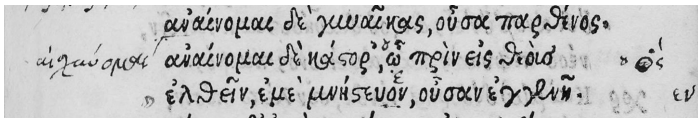 ἀναίνομαι δὲ γυναῖκας, οὖσα παρθένος.
ἀναίνομαι δὲ κάστορ', ᾧ πρὶν εἰς θεοὺς » ὅς
» ἐλθεῖν, ἐμὲ μνήστευον, οὖσαν ἐγγενῆ. εν